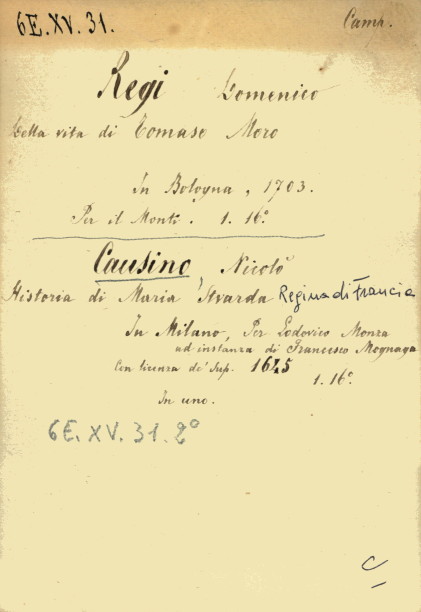 6E.XV.31.
Camp.
Regi Domenico
Della vita di Tomaso Moro
In Bologna, 1703.
Per il Monti. 1. 16º
Causino, Nicolò
Historia di Maria Stvarda Regina di Francia
In Milano, Per Lodovico Monza
ad instanza di Francesco Mognaga
Con licenza de' Sup. 1645
1. 16º.
In uno.
6E.XV.31.2º
C